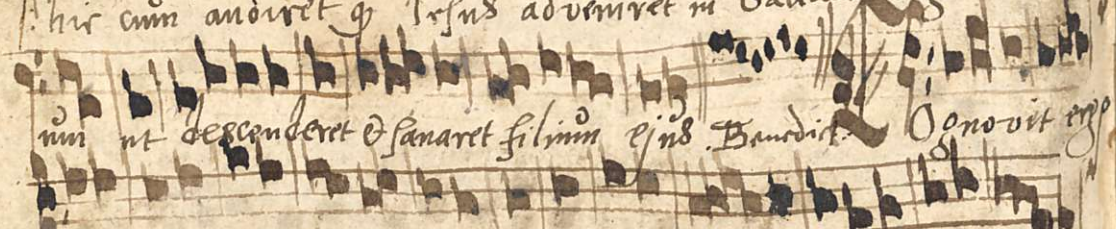 hic cum audiret q Jesus adveniret in
um ut descenderet & sanaret filium ejus. Benedict. Cognovit ergo